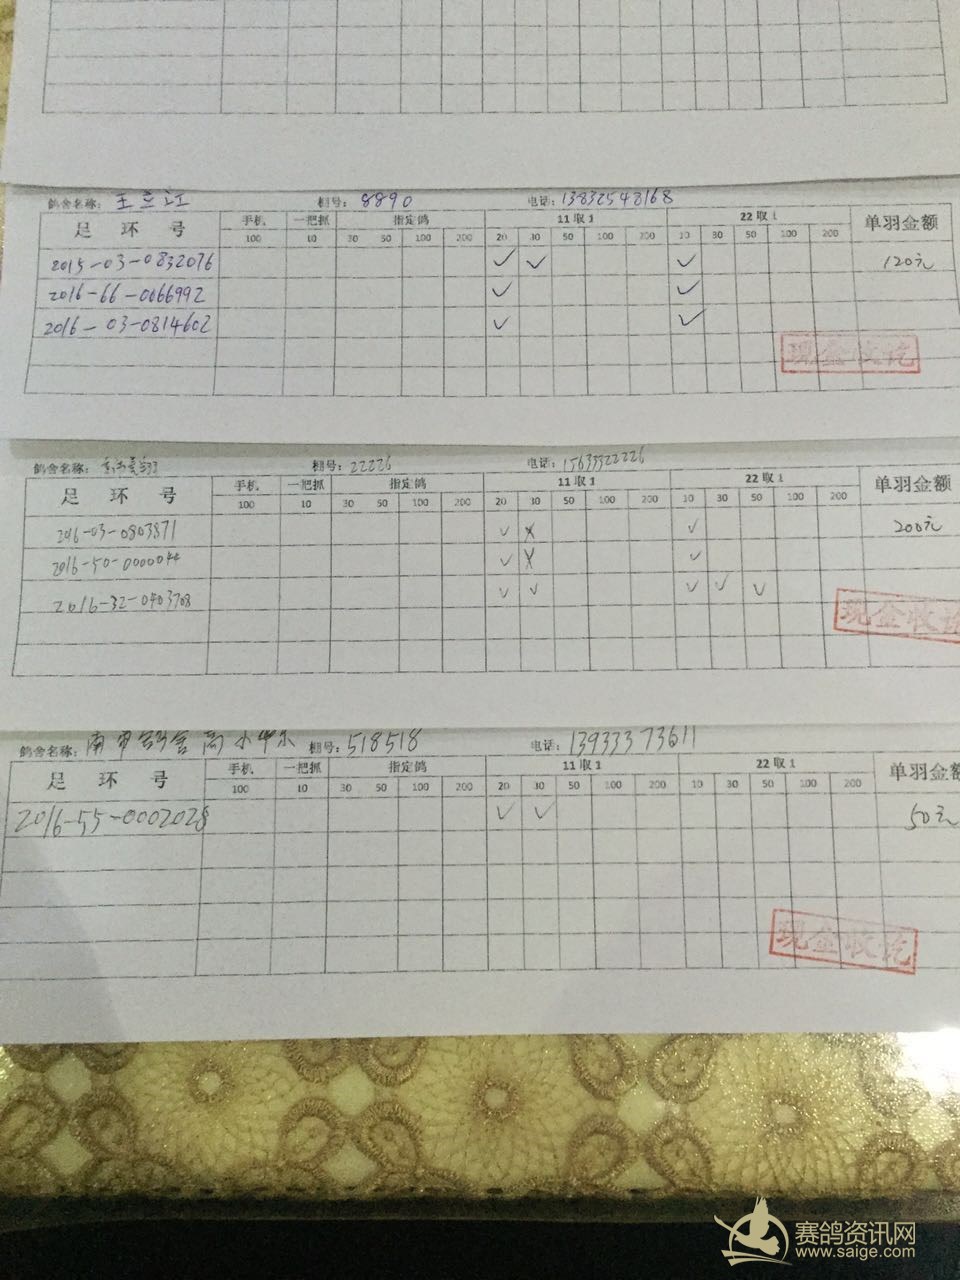 鸽舍名称： 王立江 棚号：8890 电话：13832548168
足 环 号 手机 一把抓 指定鸽 11取1 22取1 单羽金额
100 10 30 50 100 200 20 30 50 100 200 10 30 50 100 200
2015-03-0832076 ✓ ✓ ✓ 120元
2016-66-0066992 ✓ ✓
2016-03-0814602 ✓ ✓
现金收讫
鸽舍名称： 棚号：22226 电话：15633322226
足 环 号 手机 一把抓 指定鸽 11取1 22取1 单羽金额
100 10 30 50 100 200 20 30 50 100 200 10 30 50 100 200
2016-03-0803871 ✓ ✓ 200元
2016-50-0000044 ✓ ✓
2016-32-0403708 ✓ ✓ ✓ ✓ ✓
现金收讫
鸽舍名称： 棚号：518518 电话：13933373611
足 环 号 手机 一把抓 指定鸽 11取1 22取1 单羽金额
100 10 30 50 100 200 20 30 50 100 200 10 30 50 100 200
2016-55-0002028 ✓ ✓ 50元
现金收讫
赛鸽资讯网
www.saige.com